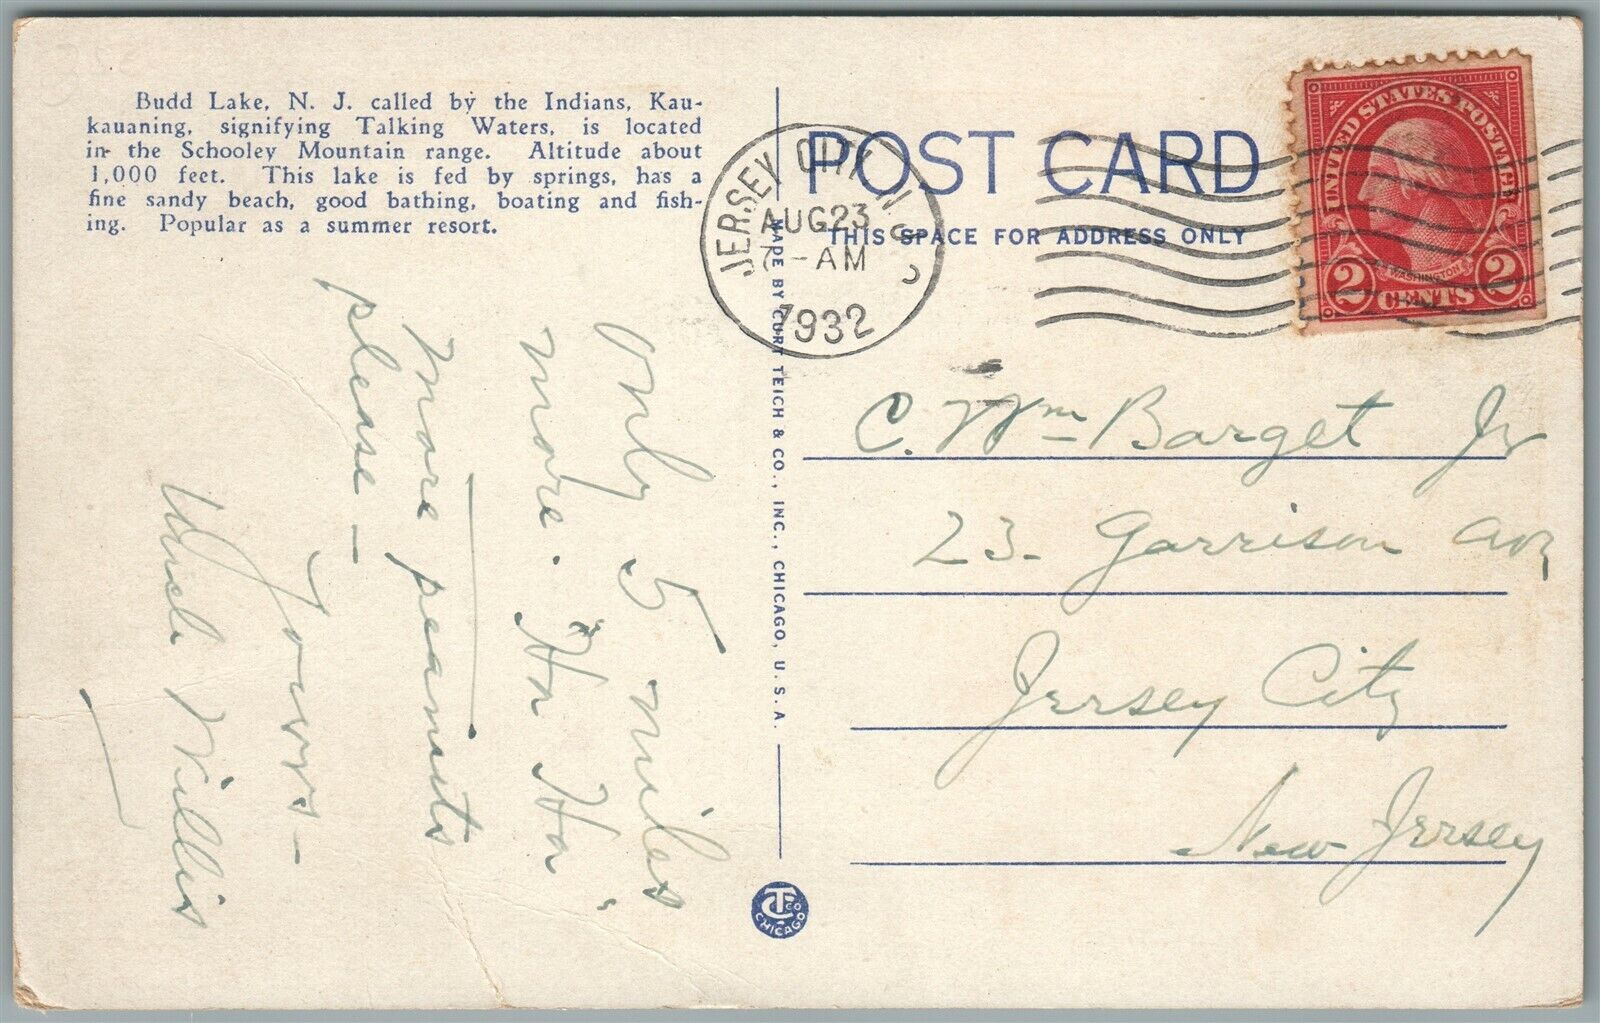 Budd Lake, N. J. called by the Indians, Kau-
kauaning, signifying Talking Waters, is located
in the Schooley Mountain range. Altitude about
1,000 feet. This lake is fed by springs, has a
fine sandy beach, good bathing, boating and fish-
ing. Popular as a summer resort.
Only 5 miles
more. Ha Ha
more peanuts
please —
Yours —
Uncle Willis
MADE BY CURT TEICH & CO., INC., CHICAGO, U. S. A.
CT CO
CHICAGO
POST CARD
THIS SPACE FOR ADDRESS ONLY
JERSEY CITY N. J.
AUG 23
7 - AM
1932
UNITED STATES POSTAGE
WASHINGTON
2 CENTS 2
C. Wm Barget Jr
23 - Garrison Ave
Jersey City
New Jersey